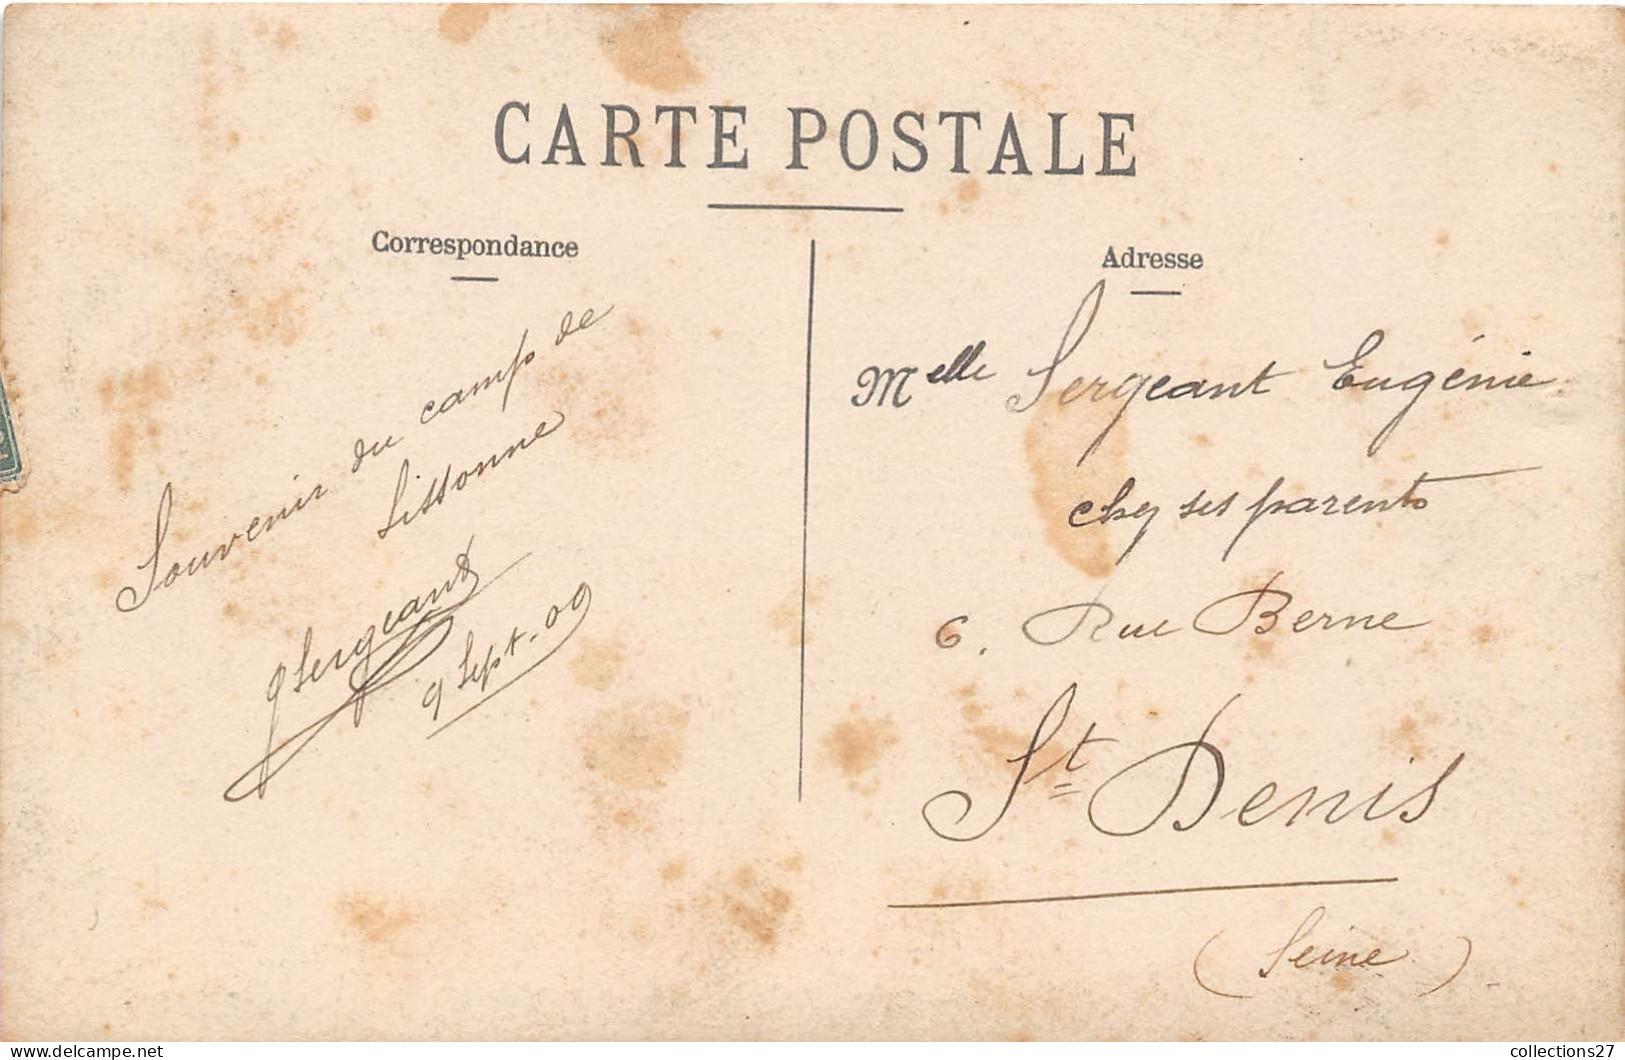 CARTE POSTALE
Correspondance
Souvenir du camp de
Sissonne
Sergeant
9 Sept. 09
Adresse
Melle Sergeant Eugénie
chez ses parents
6. Rue Berne
St Denis
(Seine)
collections27